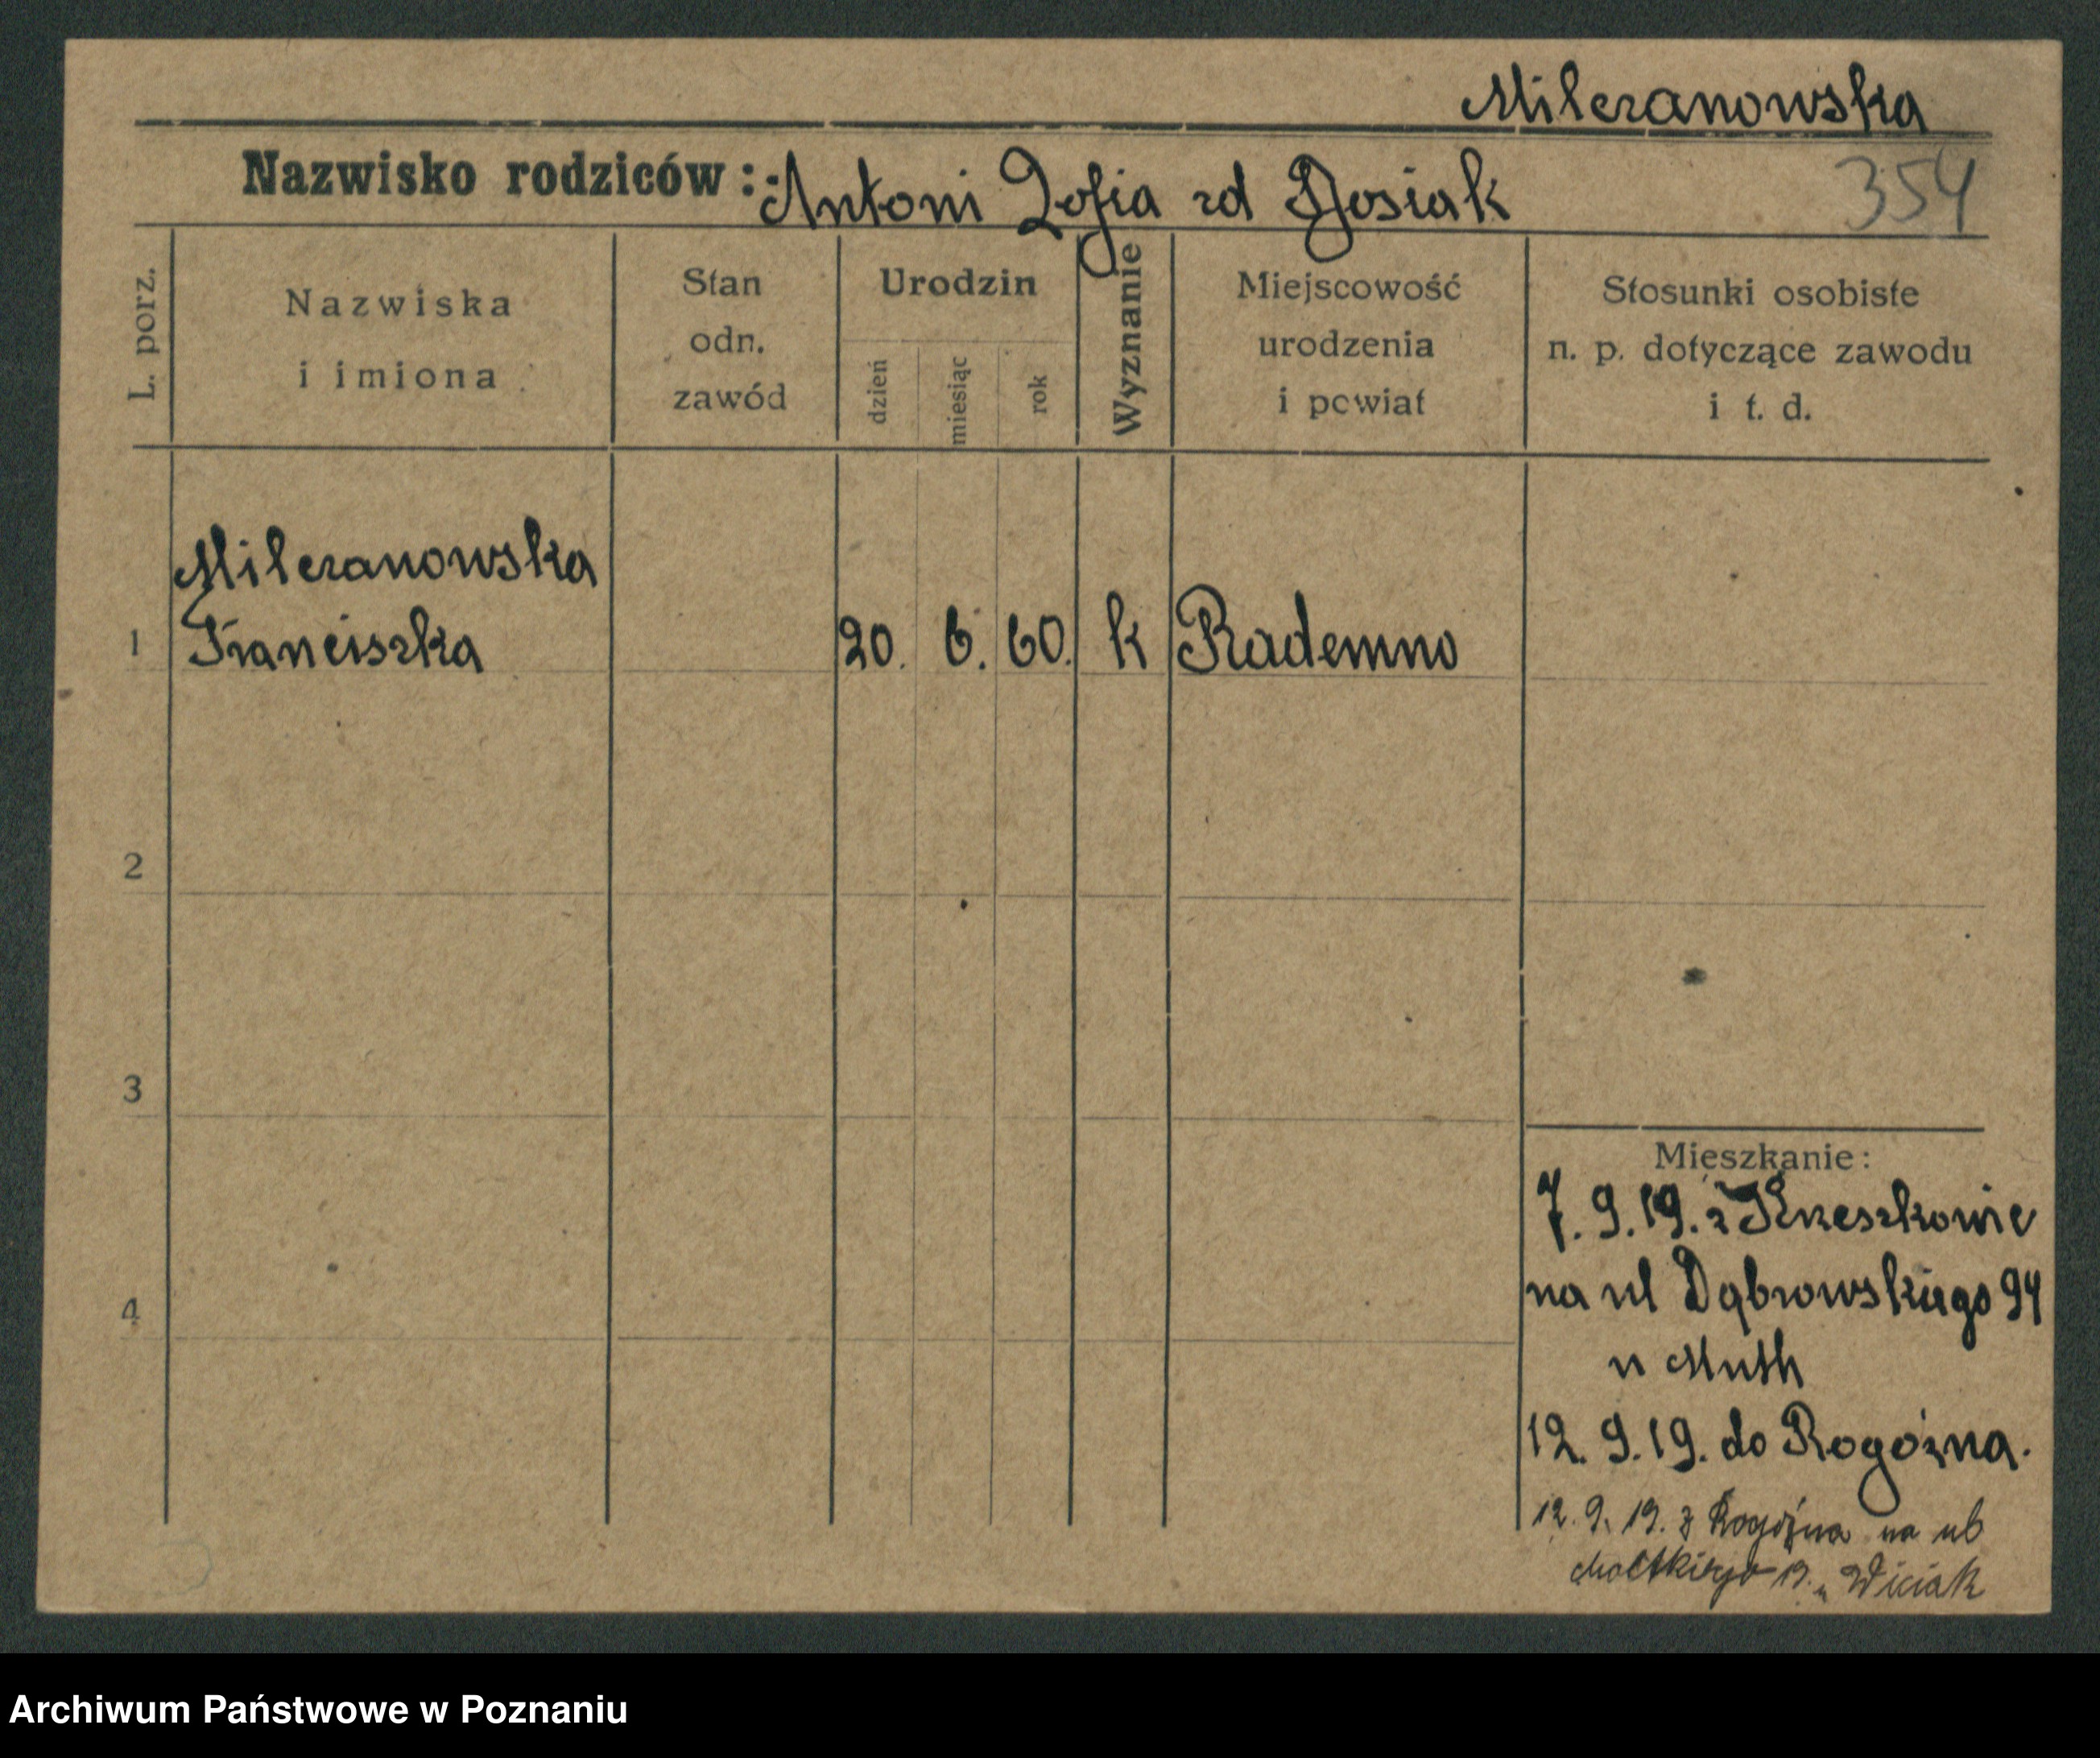 Milczanowska
Nazwisko rodziców: Antoni Zofia zd Dosiak
354
L. porz.
Nazwiska
i imiona
Stan
odn.
zawód
Urodzin
dzień
miesiąc
rok
Wyznanie
Miejscowość
urodzenia
i powiat
Stosunki osobiste
n. p. dotyczące zawodu
i t. d.
Milczanowska
1 Franciszka 20. 6. 60. k Rademno
2
3
4
Mieszkanie:
7. 9. 19. z
na ul Dąbrowskiego 94
u Muth
12. 9. 19. do Rogoźna.
12. 9. 19. z Rogoźna na ul
19. u Wiciak
Archiwum Państwowe w Poznaniu